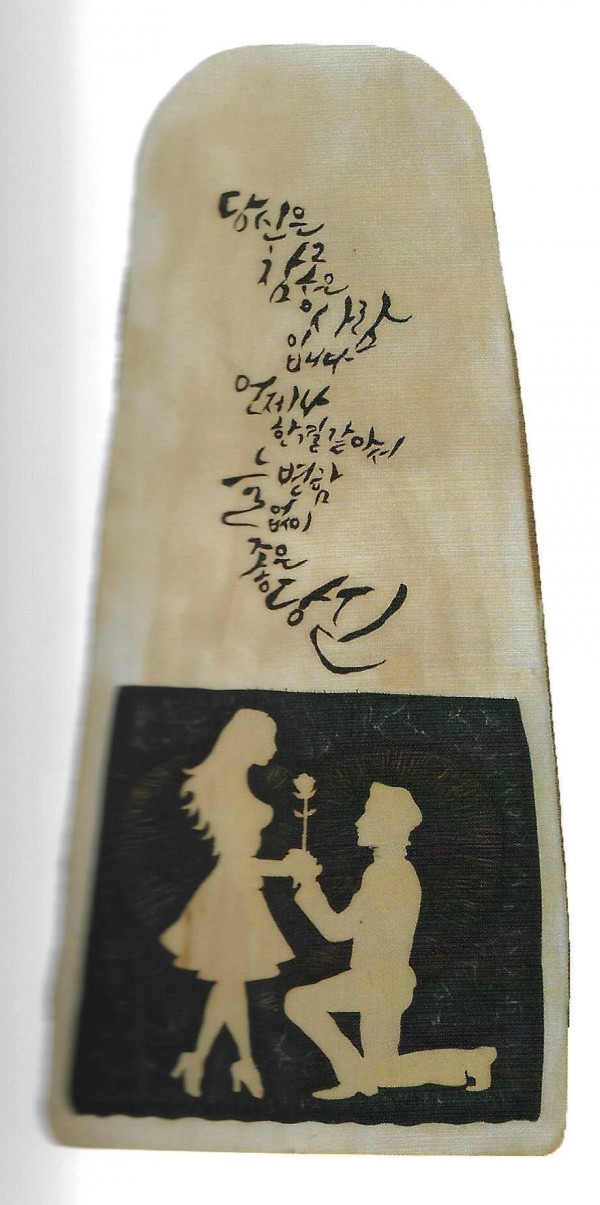 당신은
참 좋은
사람
입니다
언제나
한결같아서
늘 변함
없이
좋은
당신